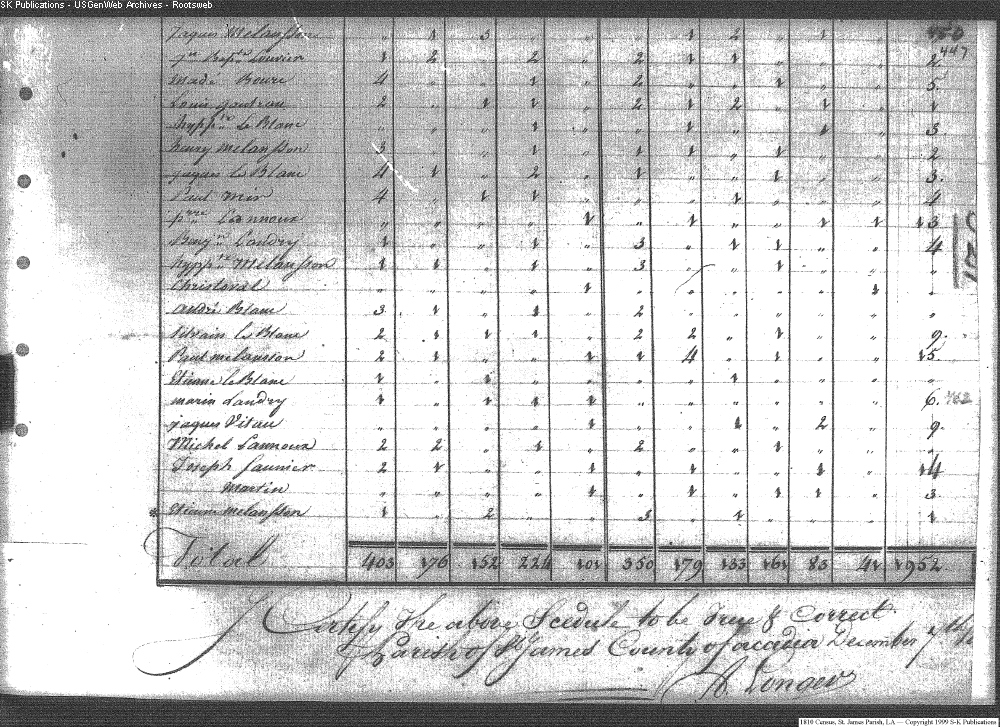 SK Publications - USGenWeb Archives - Rootsweb
Jaques Melansson " 1 3 " " " 1 2 " 1 "
447
1 2 " 2 " 2 1 1 " " " 2
4 " " 1 " 2 " " " " " 5.
Louis 2 " 1 1 " 2 1 2 " 1 " 1
hypp.te Le Blanc " " " 1 " " 1 " " 1 " 3
henry melansson 3 " " 1 " 1 1 " 1 " " 2
jaques le Blanc 4 1 " 2 " 1 " " 1 " " 3.
Paul mir 4 " 1 1 " " " 1 " " " 4
p.rre Lannoux " " " " 1 " 1 " " 1 1 13
Benj.n Landry 1 " " 1 " 3 " 1 1 " " 4
hypp.te Melansson 1 1 " 1 " 3 " " 1 " " "
Christoval " " " " 1 " " " " " 1 "
André Blanc 3 1 " 1 " 2 " " " " " "
Silvain le Blanc 2 1 1 1 " 2 2 " 1 " " 9.
Paul melanson 2 1 " " 1 1 4 " 1 " " 15.
Etienne le Blanc 1 " 1 " " " " 1 " " " "
marin Landry 1 " 1 1 1 " " " " " " 6.
jaques Vitau " " " " 1 " " 1 " 2 " 9.
Michel Lannoux 2 2 " 1 " 2 " " 1 " " "
Joseph 2 1 " " 1 " 1 " " 1 " 14
Martin " " " " 1 " 1 " 1 1 " 3
Etienne Melansson 1 " 2 " " 3 " 1 " " " 1
Total 403 176 152 224 101 350 179 133 161 83 41 1952
I Certify the above Scedule to be True & Correct
Parish of St James County of acadia December 7th
A Longer
1810 Census, St. James Parish, LA — Copyright 1999 S-K Publications